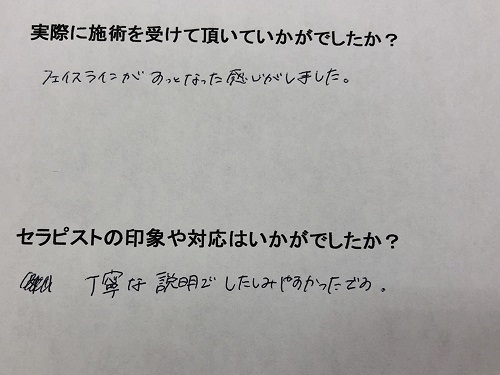 実際に施術を受けて頂いていかがでしたか？
フェイスラインがあっとなった感じがしました。
セラピストの印象や対応はいかがでしたか？
丁寧な説明でしたしみやすかったです。